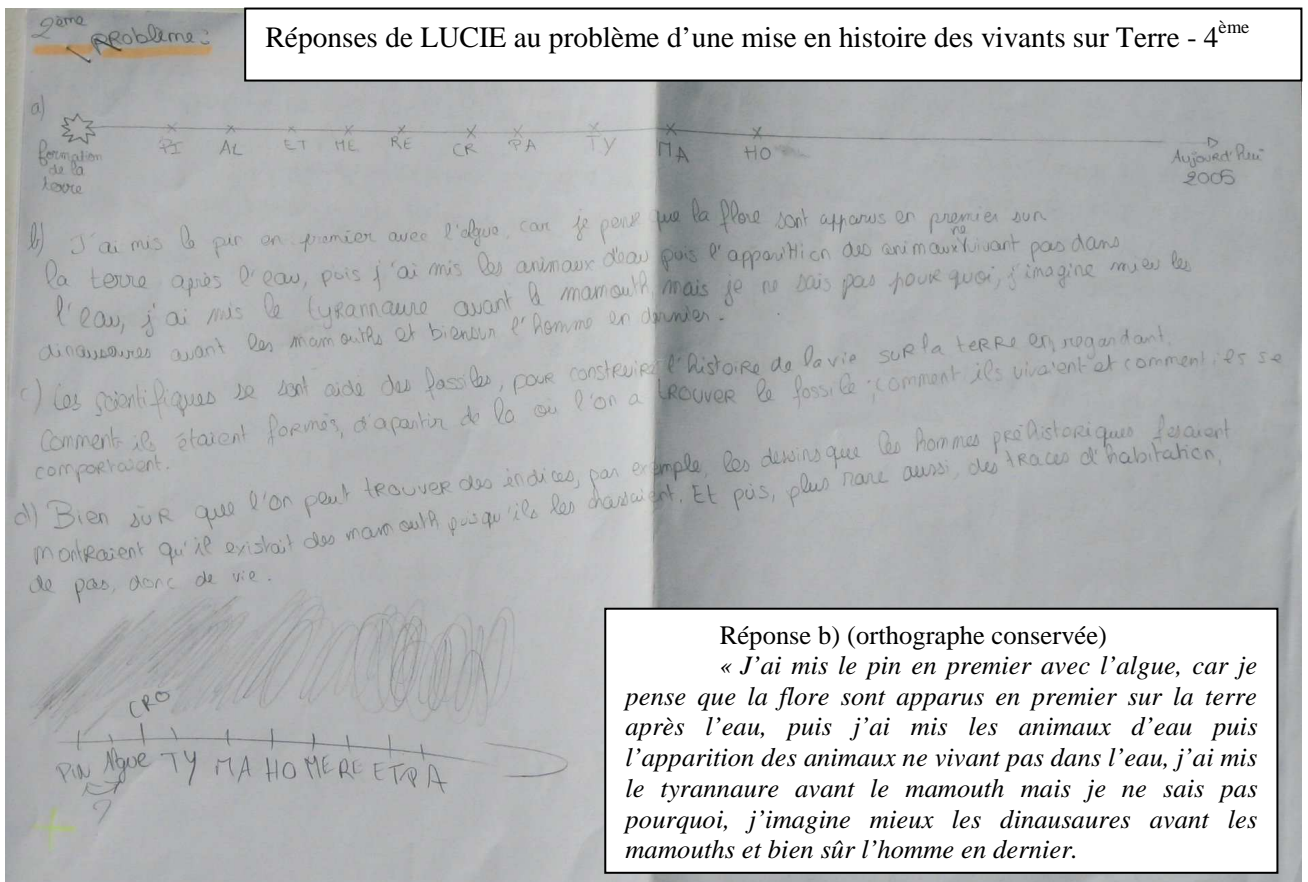 2ème
problème :
Réponses de LUCIE au problème d'une mise en histoire des vivants sur Terre - 4ème
a)
PI AL ET ME RE CR PA TY MA HO
formation
de la
terre
Aujourd'hui
2005
b) J'ai mis le pin en premier avec l'algue, car je pense que la flore sont apparus en premier sur
la terre après l'eau, puis j'ai mis les animaux d'eau puis l'apparition des animaux ne vivant pas dans
l'eau, j'ai mis le tyrannaure avant le mamouth mais je ne sais pas pourquoi, j'imagine mieu les
dinausaures avant les mamouths et biensur l'homme en dernier.
c) Les scientifiques se sont aidé des fossiles, pour construire l'histoire de la vie sur la terre en regardant
comment ils étaient formés, d'apartir de la où l'on a trouver le fossile ; comment ils vivaient et comment ils se
comportaient.
d) Bien sûr que l'on peut trouver des indices, par exemple, les dessins que les hommes préhistoriques fesaient
montraient qu'il existait des mamouth puisqu'ils les chassaient. Et puis, plus rare aussi, des traces d'habitation,
de pas, donc de vie.
CRO
PIN Algue TY MA HO ME RE ET PA
?
Réponse b) (orthographe conservée)
« J'ai mis le pin en premier avec l'algue, car je
pense que la flore sont apparus en premier sur la terre
après l'eau, puis j'ai mis les animaux d'eau puis
l'apparition des animaux ne vivant pas dans l'eau, j'ai mis
le tyrannaure avant le mamouth mais je ne sais pas
pourquoi, j'imagine mieux les dinausaures avant les
mamouths et bien sûr l'homme en dernier.